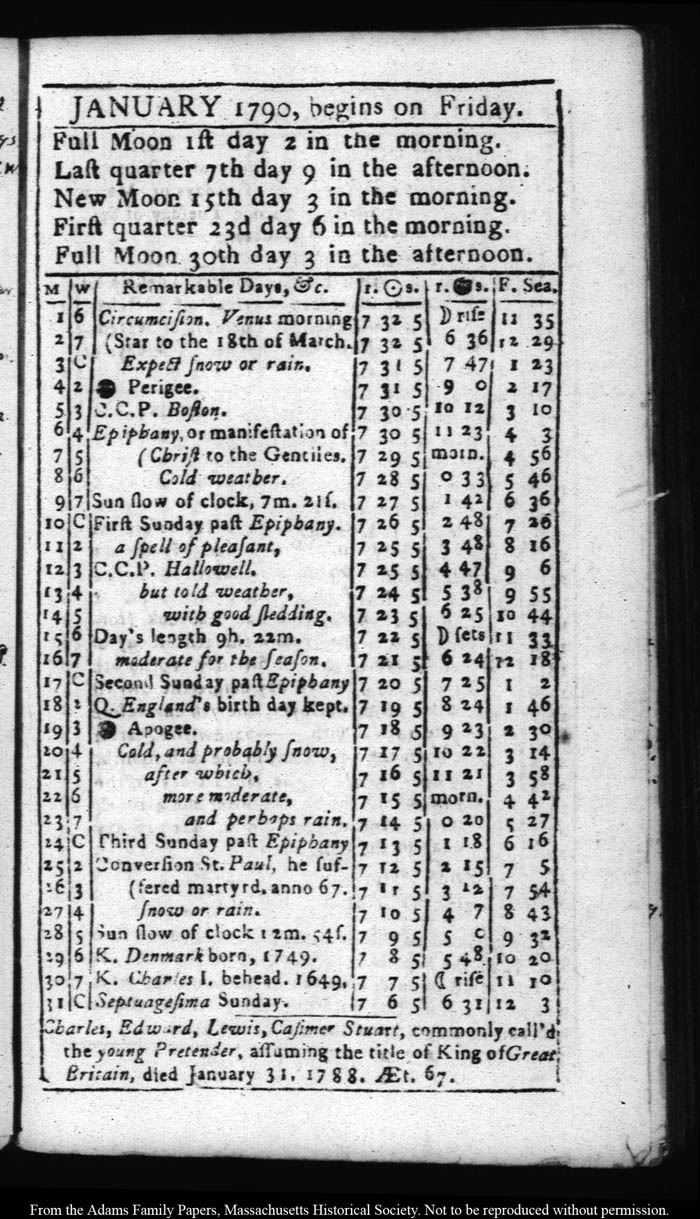 JANUARY 1790, begins on Friday.
Full Moon 1ſt day 2 in the morning.
Laſt quarter 7th day 9 in the afternoon.
New Moon 15th day 3 in the morning.
Firſt quarter 23d day 6 in the morning.
Full Moon 30th day 3 in the afternoon.
M W Remarkable Days, &c. r. ☉ s. r. ● s. F. Sea.
1 6 Circumciſion. Venus morning 7 32 5 ☽ riſe 11 35
2 7 (Star to the 18th of March. 7 32 5 6 36 12 29
3 C Expect ſnow or rain. 7 31 5 7 47 1 23
4 2 ● Perigee. 7 31 5 9 0 2 17
5 3 C.C.P. Boſton. 7 30 5 10 12 3 10
6 4 Epiphany, or manifeſtation of 7 30 5 11 23 4 3
7 5 (Chriſt to the Gentiles. 7 29 5 morn. 4 56
8 6 Cold weather. 7 28 5 0 33 5 46
9 7 Sun ſlow of clock, 7m. 21ſ. 7 27 5 1 42 6 36
10 C Firſt Sunday paſt Epiphany. 7 26 5 2 48 7 26
11 2 a ſpell of pleaſant, 7 25 5 3 48 8 16
12 3 C.C.P. Hallowell. 7 25 5 4 47 9 6
13 4 but told weather, 7 24 5 5 38 9 55
14 5 with good ſledding. 7 23 5 6 25 10 44
15 6 Day's length 9h. 22m. 7 22 5 ☽ ſets 11 33
16 7 moderate for the ſeaſon. 7 21 5 6 24 12 18
17 C Second Sunday paſt Epiphany 7 20 5 7 25 1 2
18 2 Q. England's birth day kept. 7 19 5 8 24 1 46
19 3 ● Apogee. 7 18 5 9 23 2 30
20 4 Cold, and probably ſnow, 7 17 5 10 22 3 14
21 5 after which, 7 16 5 11 21 3 58
22 6 more moderate, 7 15 5 morn. 4 42
23 7 and perhaps rain. 7 14 5 0 20 5 27
24 C Third Sunday paſt Epiphany 7 13 5 1 18 6 16
25 2 Converſion St. Paul, he ſuf- 7 12 5 2 15 7 5
26 3 (fered martyrd. anno 67. 7 11 5 3 12 7 54
27 4 ſnow or rain. 7 10 5 4 7 8 43
28 5 Sun ſlow of clock 12m. 54ſ. 7 9 5 5 0 9 32
29 6 K. Denmark born, 1749. 7 8 5 5 48 10 20
30 7 K. Charles I. behead. 1649. 7 7 5 ☾ riſe 11 10
31 C Septuageſima Sunday. 7 6 5 6 31 12 3
Charles, Edward, Lewis, Caſimer Stuart, commonly call'd
the young Pretender, aſſuming the title of King of Great
Britain, died January 31. 1788. Æt. 67.
From the Adams Family Papers, Massachusetts Historical Society. Not to be reproduced without permission.